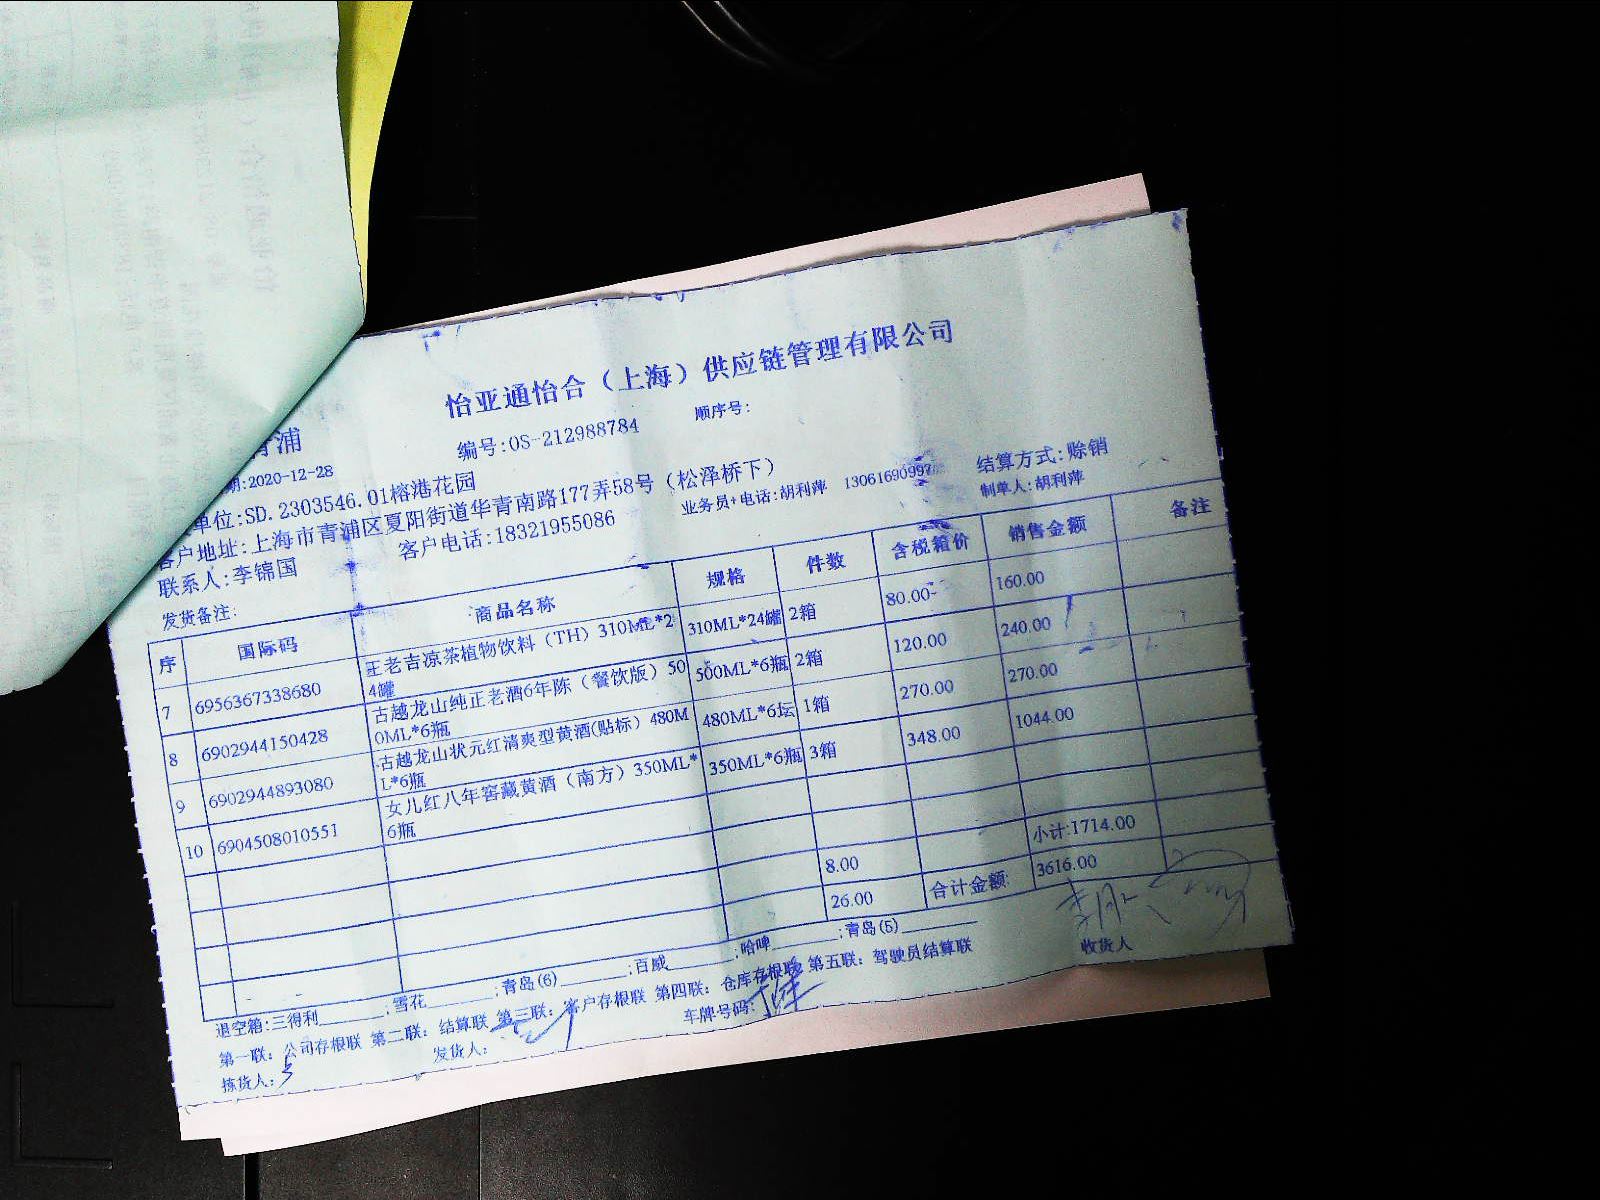 怡亚通怡合（上海）供应链管理有限公司
青浦 编号:OS-212988784 顺序号:
期:2020-12-28
单位:SD.2303546.01榕港花园 结算方式:赊销
客户地址:上海市青浦区夏阳街道华青南路177弄58号（松泽桥下） 业务员+电话:胡利萍 13061690997 制单人:胡利萍
联系人:李锦国 客户电话:18321955086
发货备注:
序 国际码 商品名称 规格 件数 含税箱价 销售金额 备注
7 6956367338680 王老吉凉茶植物饮料（TH）310ML*24罐 310ML*24罐 2箱 80.00 160.00
8 6902944150428 古越龙山纯正老酒6年陈（餐饮版）500ML*6瓶 500ML*6瓶 2箱 120.00 240.00
9 6902944893080 古越龙山状元红清爽型黄酒(贴标）480ML*6瓶 480ML*6坛 1箱 270.00 270.00
10 6904508010551 女儿红八年窖藏黄酒（南方）350ML*6瓶 350ML*6瓶 3箱 348.00 1044.00
8.00 小计:1714.00
26.00 合计金额: 3616.00
退空箱:三得利______;雪花______;青岛(6)______;百威______;哈啤______;青岛(5)______
第一联：公司存根联 第二联：结算联 第三联：客户存根联 第四联：仓库存根联 第五联：驾驶员结算联
拣货人: 发货人: 车牌号码: 收货人